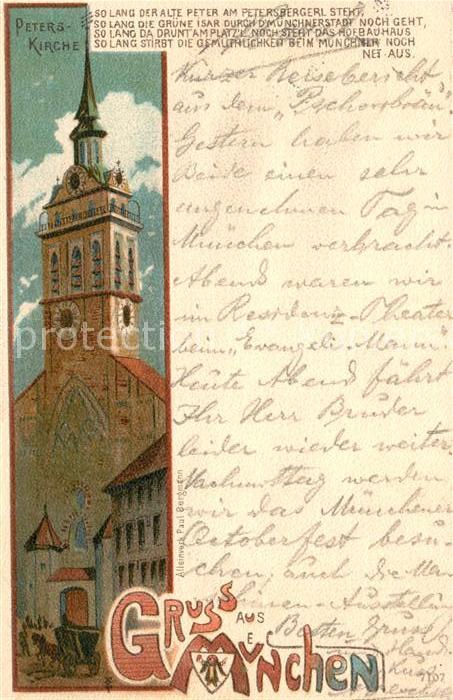 PETERS-
KIRCHE
SO LANG DER ALTE PETER AM PETERSBERGERL STEHT,
SO LANG DIE GRÜNE ISAR DURCH D'MÜNCHNERSTADT NOCH GEHT,
SO LANG DA DRUNT AM PLATZ'L NOCH STEHT DAS HOFBÄUHAUS
SO LANG STIRBT DIE GEMÜTHLICHKEIT BEIM MÜNCHNER NOCH
NET AUS.
Kurzer Reisebericht
aus dem "Pschorrbräu".
Gestern haben wir
Beide einen sehr
angenehmen Tag in
München verbracht.
Abend waren wir
im Residenz-Theater
beim "Evangeli-Mann".
Heute Abend fährt
Ihr Herr Bruder
leider wieder weiter.
Nachmittag werden
wir das Münchener
Octoberfest besu-
chen, auch die
Besten Gruss
Alleinverk. Paul Bergmann
GRUSS AUS
MÜNCHEN
protecti